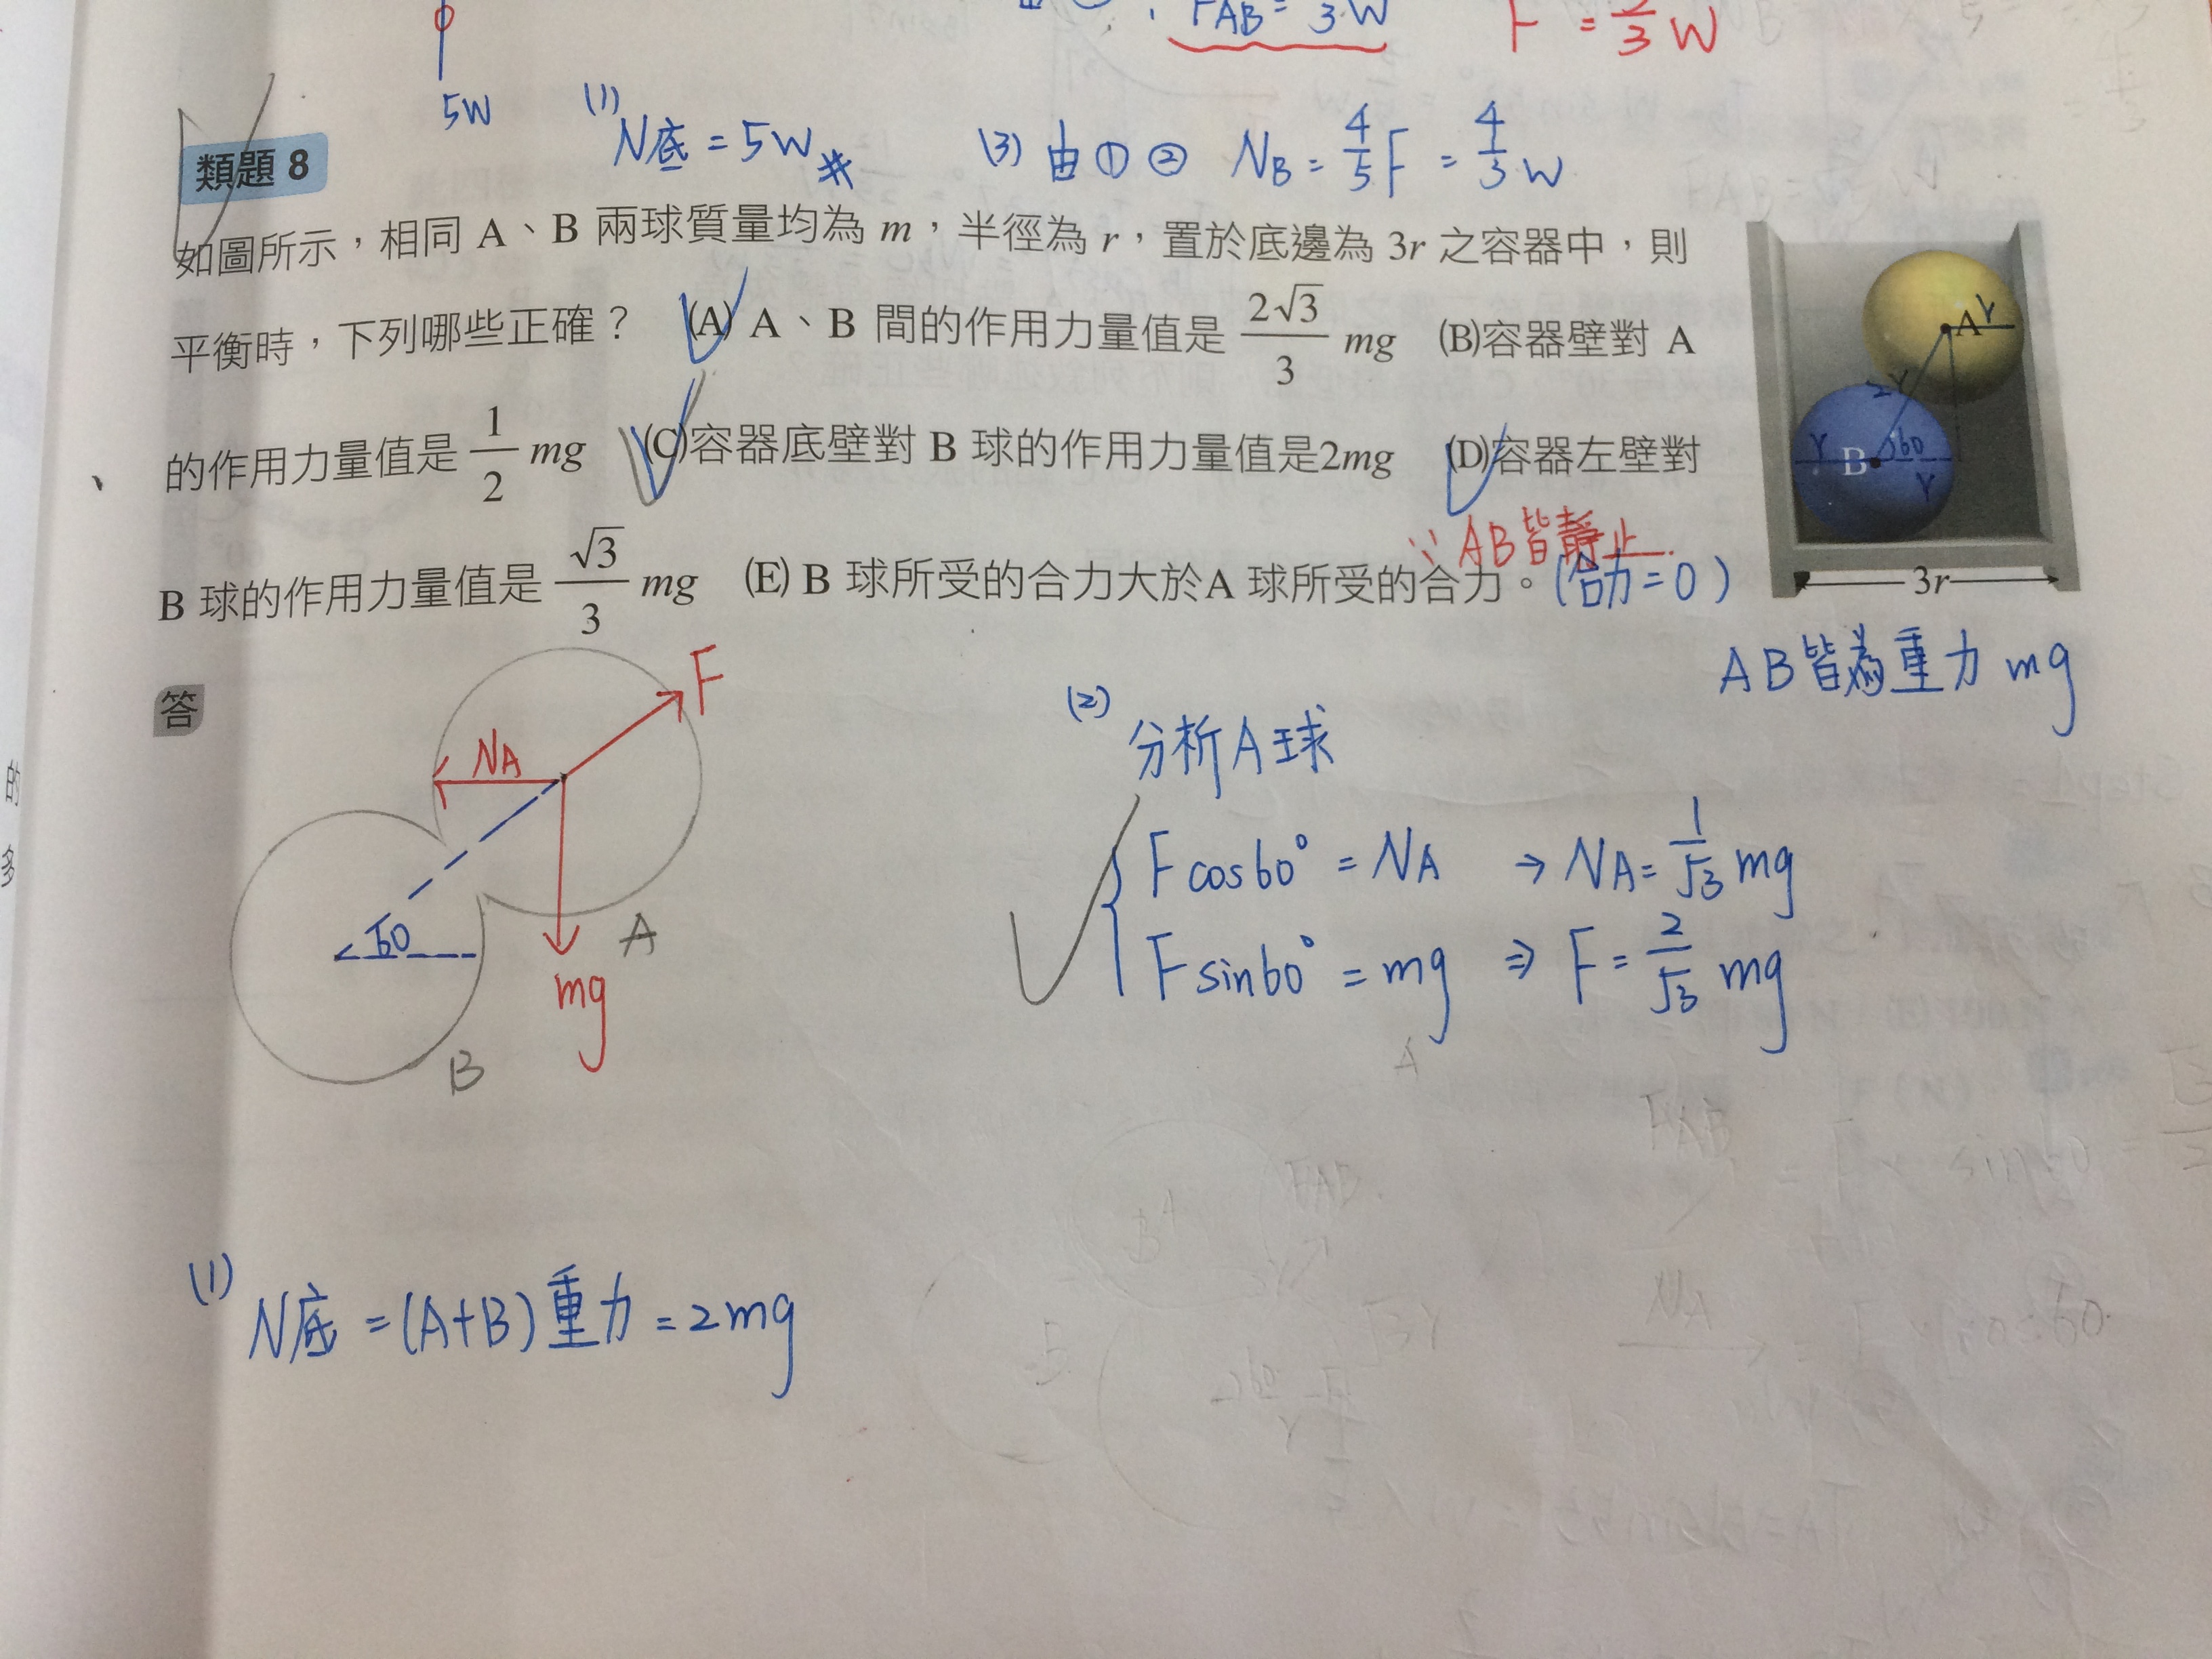 FAB = 3 W
F = 2/3 W
5W
(1) N底 = 5W ※
(3) 由①② NB = 4/5 F = 4/3 W
類題 8
如圖所示,相同 A、B 兩球質量均為 m,半徑為 r,置於底邊為 3r 之容器中,則
平衡時,下列哪些正確? (A) A、B 間的作用力量值是 2√3/3 mg (B)容器壁對 A
的作用力量值是 1/2 mg (C)容器底壁對 B 球的作用力量值是2mg (D)容器左壁對
B 球的作用力量值是 √3/3 mg (E) B 球所受的合力大於A 球所受的合力。(合力=0)
∵AB皆靜止
A r
2r
r B 60 r
3r
AB皆為重力 mg
答
F
NA
60
mg
A
B
(2) 分析A球
F cos60° = NA → NA = 1/√3 mg
F sin60° = mg ⇒ F = 2/√3 mg
A
FAB
FAB
NA
(1) N底 = (A+B)重力 = 2mg
的
多